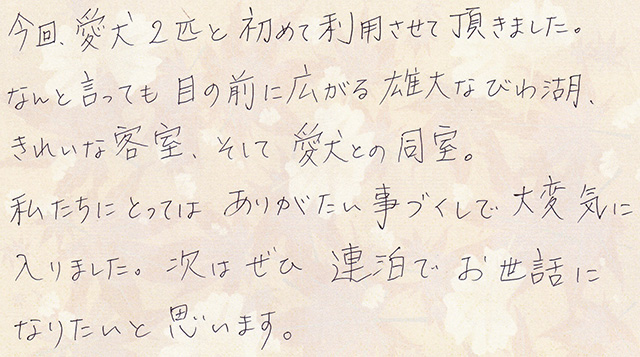 今回、愛犬2匹と初めて利用させて頂きました。
なんと言っても目の前に広がる雄大なびわ湖、
きれいな客室、そして愛犬との同室。
私たちにとってはありがたい事づくしで大変気に
入りました。次はぜひ連泊でお世話に
なりたいと思います。